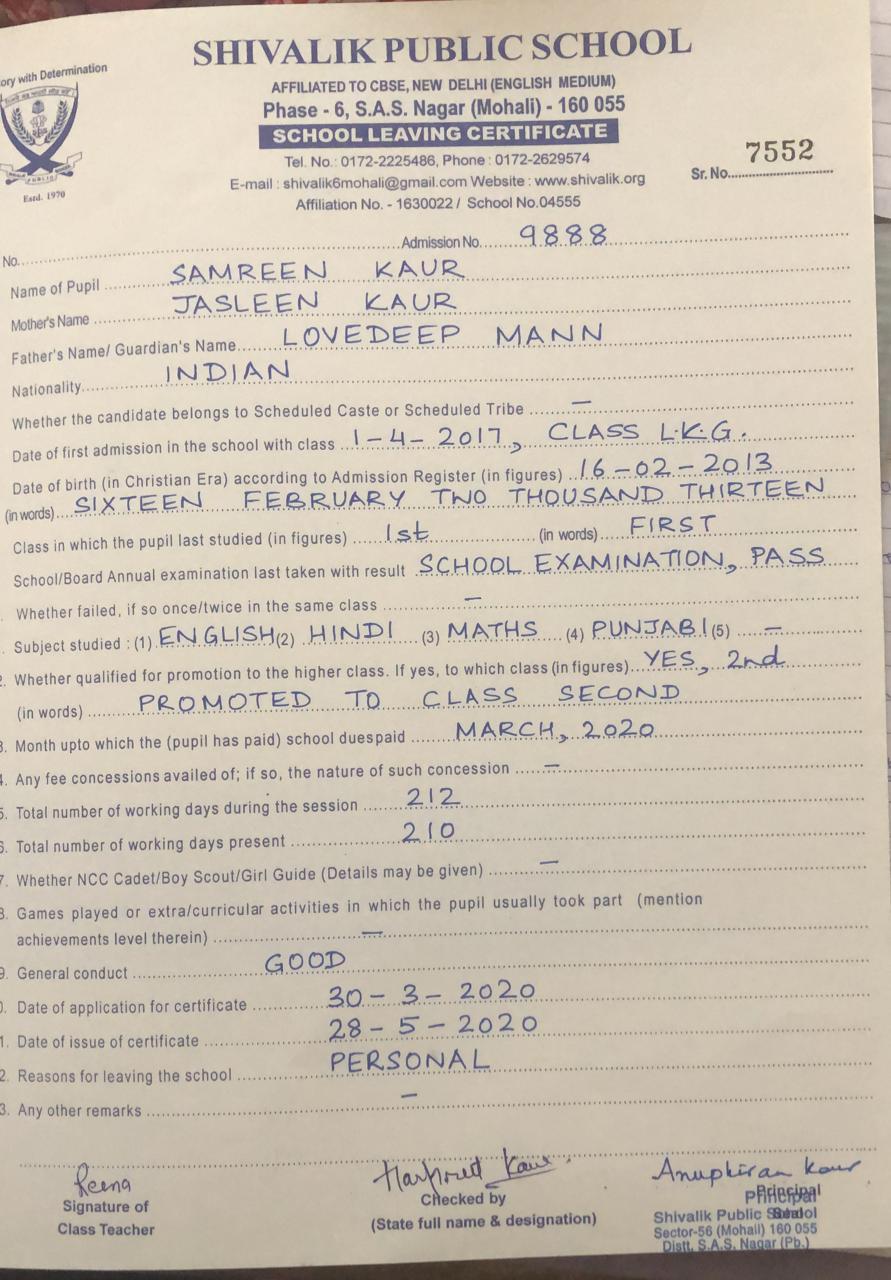 SHIVALIK PUBLIC SCHOOL
ory with Determination
AFFILIATED TO CBSE, NEW DELHI (ENGLISH MEDIUM)
Phase - 6, S.A.S. Nagar (Mohali) - 160 055
SCHOOL LEAVING CERTIFICATE
Tel. No.: 0172-2225486, Phone : 0172-2629574
Sr. No. 7552
E-mail : shivalik6mohali@gmail.com Website : www.shivalik.org
Estd. 1970
Affiliation No. - 1630022 / School No.04555
No. Admission No. 9888
Name of Pupil SAMREEN KAUR
Mother's Name JASLEEN KAUR
Father's Name/ Guardian's Name LOVEDEEP MANN
Nationality INDIAN
Whether the candidate belongs to Scheduled Caste or Scheduled Tribe —
Date of first admission in the school with class 1-4-2017, CLASS L.K.G.
Date of birth (in Christian Era) according to Admission Register (in figures) 16-02-2013
(in words) SIXTEEN FEBRUARY TWO THOUSAND THIRTEEN
Class in which the pupil last studied (in figures) 1st (in words) FIRST
School/Board Annual examination last taken with result SCHOOL EXAMINATION, PASS
Whether failed, if so once/twice in the same class —
. Subject studied : (1) ENGLISH (2) HINDI (3) MATHS (4) PUNJABI (5) —
2. Whether qualified for promotion to the higher class. If yes, to which class (in figures) YES, 2nd
(in words) PROMOTED TO CLASS SECOND
3. Month upto which the (pupil has paid) school duespaid MARCH, 2020
4. Any fee concessions availed of; if so, the nature of such concession —
5. Total number of working days during the session 212
6. Total number of working days present 210
7. Whether NCC Cadet/Boy Scout/Girl Guide (Details may be given) —
8. Games played or extra/curricular activities in which the pupil usually took part (mention
achievements level therein) —
9. General conduct GOOD
0. Date of application for certificate 30-3-2020
1. Date of issue of certificate 28-5-2020
2. Reasons for leaving the school PERSONAL
3. Any other remarks —
Reena
Harpreet Kaur
Anupkiran Kaur
Signature of
Class Teacher
Checked by
(State full name & designation)
Principal
Principal
Shivalik Public School
Seal
Sector-56 (Mohali) 160 055
Distt. S.A.S. Nagar (Pb.)